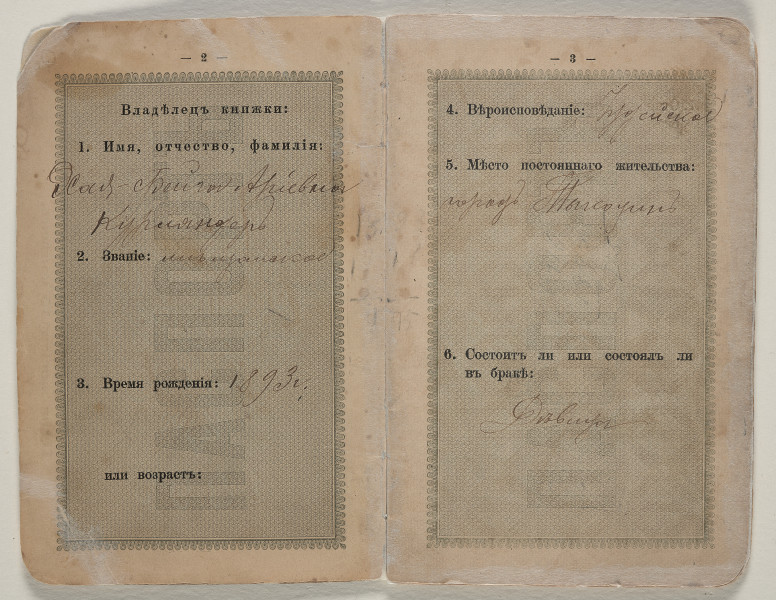 — 2 —
Владѣлецъ книжки:
1. Имя, отчество, фамилія:
Хая-Бейла Аріевна
Курляндеръ
2. Званіе: мѣщанское
3. Время рожденія: 1893 г.
или возрастъ:
— 3 —
4. Вѣроисповѣданіе: Іудейское
5. Мѣсто постояннаго жительства:
городъ
6. Состоитъ ли или состоялъ ли
въ бракѣ:
Дѣвица